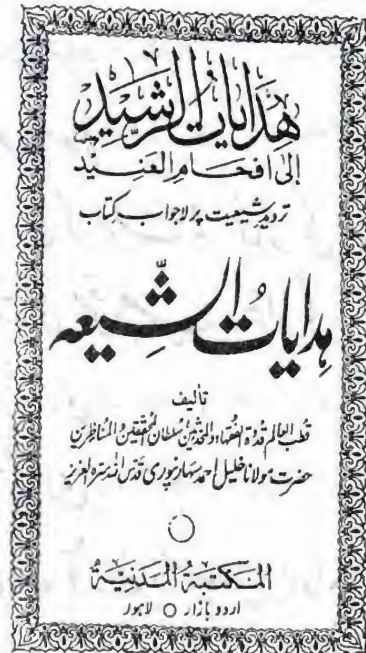 هدايات الرشيد
إلى إفحام العنيد
تردید شیعیت پر لاجواب کتاب
ہدایات الشیعہ
تالیف
قطب العالم قدوة الفقہاء والمحدثین سلطان المحققین والمناظرین
حضرت مولانا خلیل احمد سہارنپوری قدس اللہ سرہ العزیز
المكتبة المدنية
اردو بازار ○ لاہور